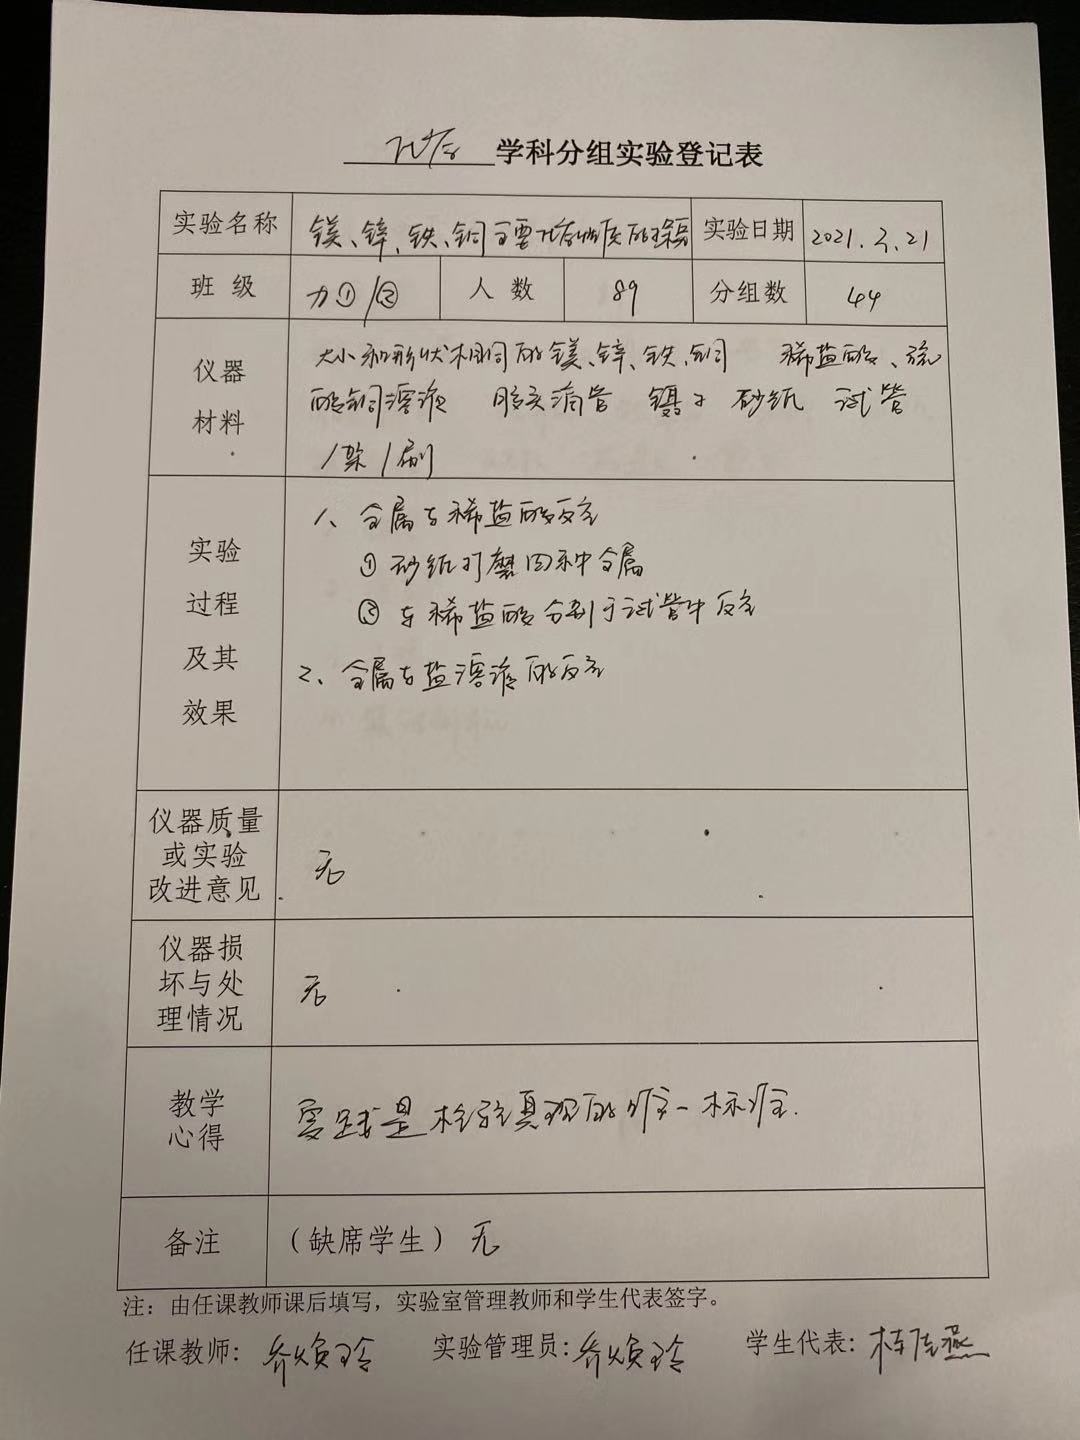 化学 学科分组实验登记表
实验名称 镁、锌、铁、铜主要化学性质的探究 实验日期 2021.3.21
班 级 九①/② 人 数 89 分组数 44
仪器
材料
大小和形状相同的镁、锌、铁、铜 稀盐酸、硫
酸铜溶液 胶头滴管 镊子 砂纸 试管
/架/刷
实验
过程
及其
效果
1、金属与稀盐酸反应
①砂纸打磨四种金属
②与稀盐酸分别于试管中反应
2、金属与盐溶液的反应
仪器质量
或实验
改进意见
无
仪器损
坏与处
理情况
无
教学
心得
实践是检验真理的唯一标准.
备注 (缺席学生) 无
注：由任课教师课后填写，实验室管理教师和学生代表签字。
任课教师: 乔焕玲 实验管理员: 乔焕玲 学生代表: